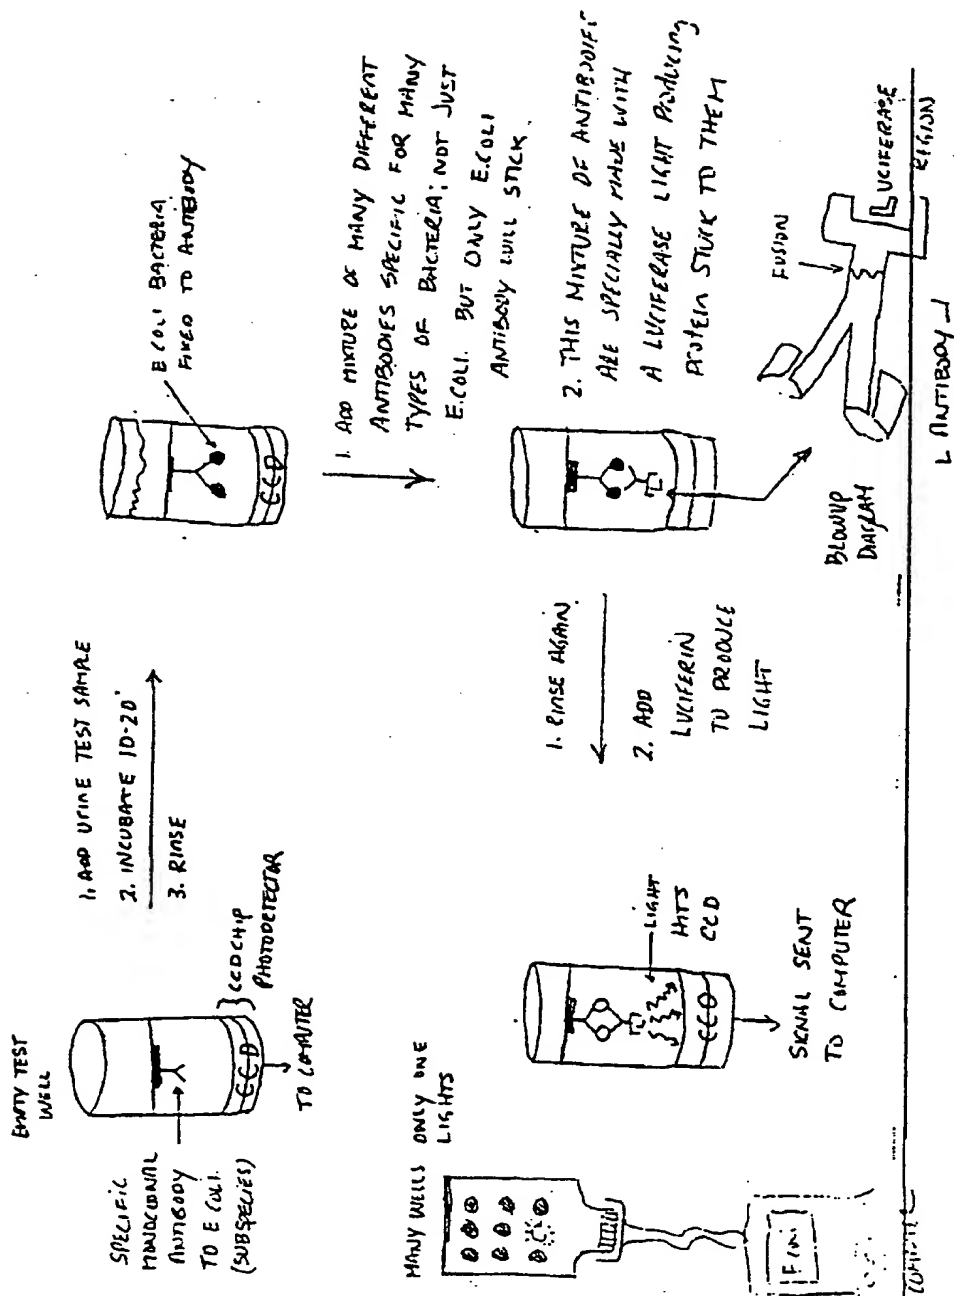 EMPTY TEST
WELL
SPECIFIC
MONOCLONAL
ANTIBODY
TO E COLI.
(SUBSPECIES)
CCD
} CCD CHIP
PHOTODETECTOR
TO COMPUTER
1. ADD URINE TEST SAMPLE
2. INCUBATE 10-20'
3. RINSE
E COLI BACTERIA
FIXED TO ANTIBODY
CCD
1. ADD MIXTURE OF MANY DIFFERENT
ANTIBODIES SPECIFIC FOR MANY
TYPES OF BACTERIA; NOT JUST
E.COLI. BUT ONLY E.COLI
ANTIBODY WILL STICK.
2. THIS MIXTURE OF ANTIBODIES
ARE SPECIALLY MADE WITH
A LUCIFERASE LIGHT PRODUCING
PROTEIN STUCK TO THEM
BLOWUP
DIAGRAM
FUSION
LUCIFERASE
REGION
ANTIBODY
1. RINSE AGAIN
2. ADD
LUCIFERIN
TO PRODUCE
LIGHT
LIGHT
HITS
CCD
CCD
SIGNAL SENT
TO COMPUTER
MANY WELLS ONLY ONE
LIGHTS